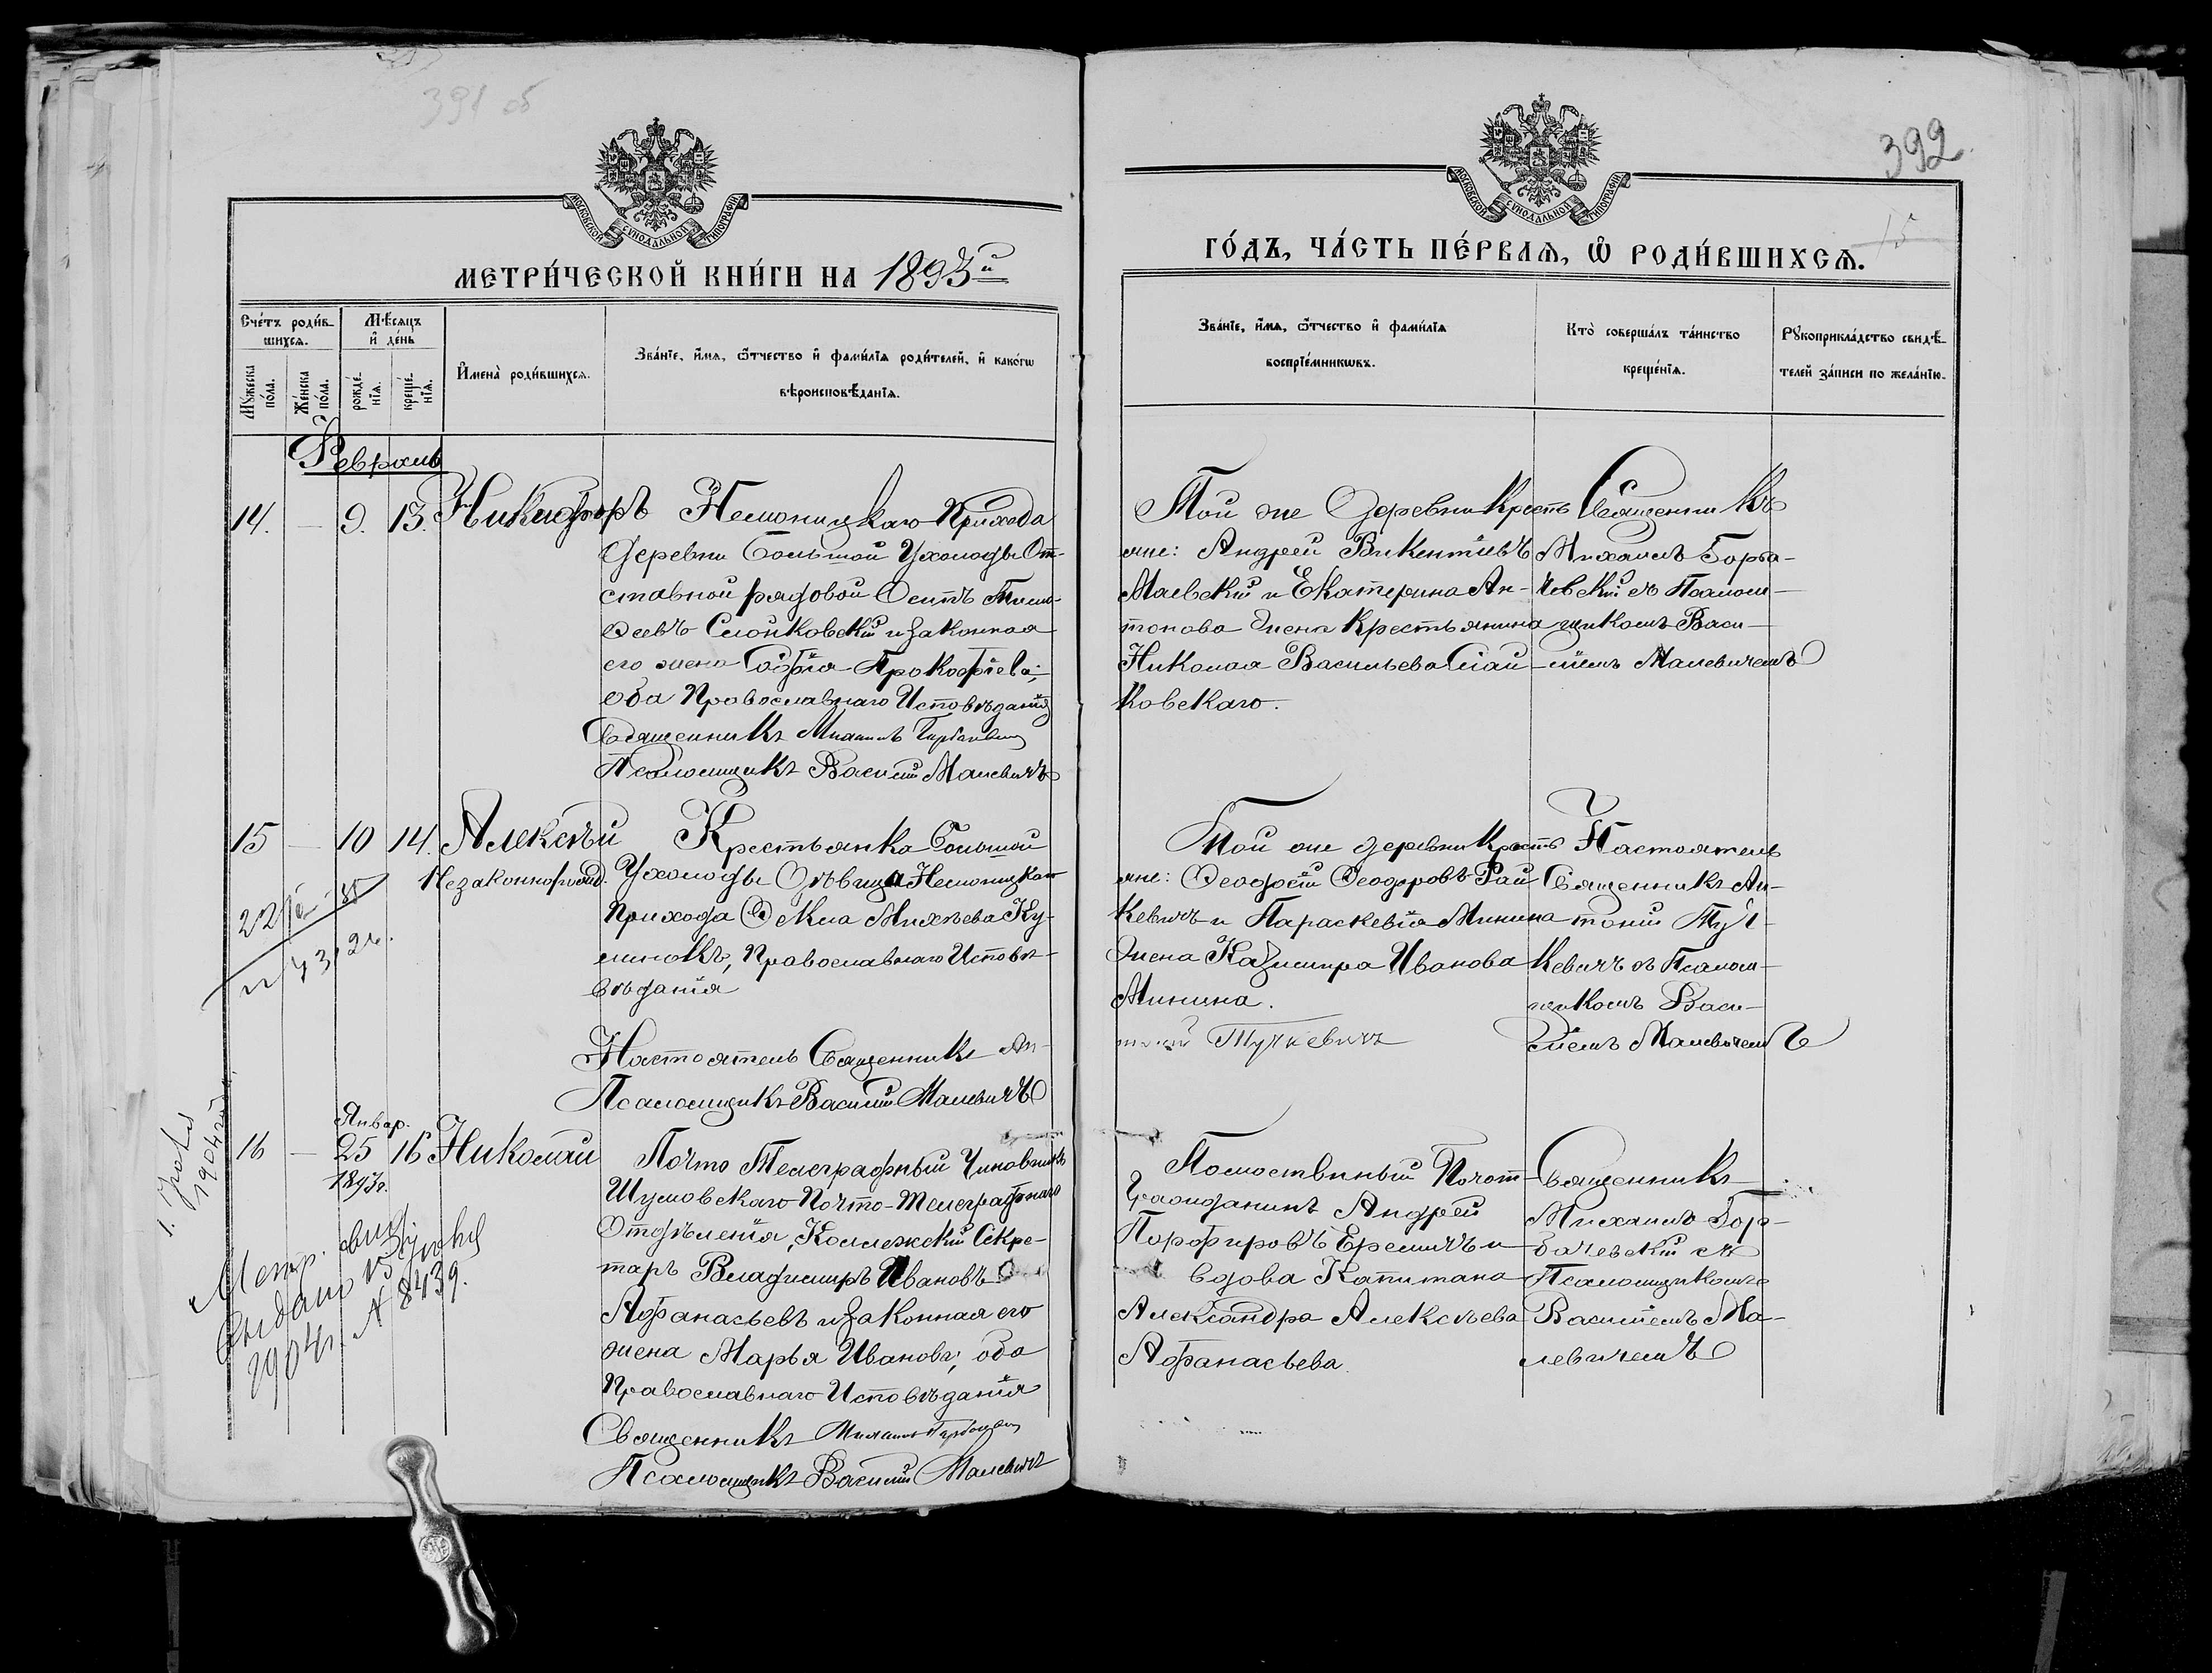 391 об
МОСКОВСКОЙ СѴНОДАЛЬНОЙ ТИПОГРАФІИ
МЕТРИ́ЧЕСКОЙ КНИ́ГИ НА 1893й
Сче́тъ роди́в-
шихсѧ.
Мѣ́сѧцъ
и҆ де́нь
Мꙋ́жеска
по́ла.
Же́нска
по́ла.
рожде́-
нїѧ.
креще́-
нїѧ.
И҆мена̀ роди́вшихсѧ.
Зва́нїе, и҆́мѧ, ѻ҆́тчество и҆ фами́лїѧ роди́телей, и҆ како́гѡ
вѣроисповѣ́данїѧ.
Февраль
14. — 9. 13. Никифоръ
Немоницкаго Прихода
деревни Большой Ухолоды От-
ставной рядовой Осипъ Тимо-
ѳеевъ Слонковскій и законная
его жена Софія Прокофіева;
оба Православнаго Исповѣданія
Священникъ Михаилъ Горбачевскій
Псаломщикъ Василій Малевичъ
15 — 10 14. Алексѣй
Незаконнорожд.
Крестьянка Большой
Ухолоды Дѣвица Немоницкаго
Прихода Ѳекла Михѣева Ку-
линокъ, Православнаго Исповѣ-
вѣданія
Настоятель Священникъ Ан-
Псаломщикъ Василій Малевичъ
Январ.
16 — 25 16 Николай
1893г.
Почто Телеграфный Чиновникъ
Шумовскаго Почто-Телеграфнаго
Отдѣленія, Коллежскій Секре-
тарь Владимиръ Ивановъ
Афанасьевъ и законная его
жена Марья Иванова; оба
Православнаго Исповѣданія
Священникъ Михаилъ Горбачевскій
Псаломщикъ Василій Малевичъ
1904 года.
Метр.
выдано
1904г. № 8439.
392
МОСКОВСКОЙ СѴНОДАЛЬНОЙ ТИПОГРАФІИ
15
ГО́ДЪ, ЧА́СТЬ ПЕ́РВАѦ, Ѡ҆ РОДИ́ВШИХСѦ.
Зва́нїе, и҆́мѧ, ѻ҆́тчество и҆ фами́лїѧ
воспрїе́мникѡвъ.
Кто̀ соверша́лъ та́инство
креще́нїѧ.
Рꙋкоприкла́дство свидѣ́-
телей за́писи по жела́нїю.
Той же деревни Кресть
яне: Андрей Викентіевъ
Маевскій и Екатерина Ан-
тонова Жена Крестьянина
Николая Васильева Слай-
ковскаго.
Священникъ
Михаилъ Горба-
чевскій съ Псалом-
щикомъ Васи-
ліемъ Малевичемъ
Той же деревни Кресть
яне: Ѳеодосій Ѳеодоровъ Рай
кевичъ и Параскевія Минина
Жена Казимира Иванова
Минина.
тоній Тучкевичъ
Настоятель
Священникъ Ан-
тоній Туч-
кевичъ съ Псалом-
щикомъ Васи-
ліемъ Малевичемъ
Помоственный Почот
Гражданинъ Андрей
Порфировъ Еремичъ и
вдова Капитана
Александра Алексѣева
Афанасьева.
Священникъ
Михаилъ Гор-
бачевскій съ
Псаломщикомъ
Василіемъ Ма-
левичемъ